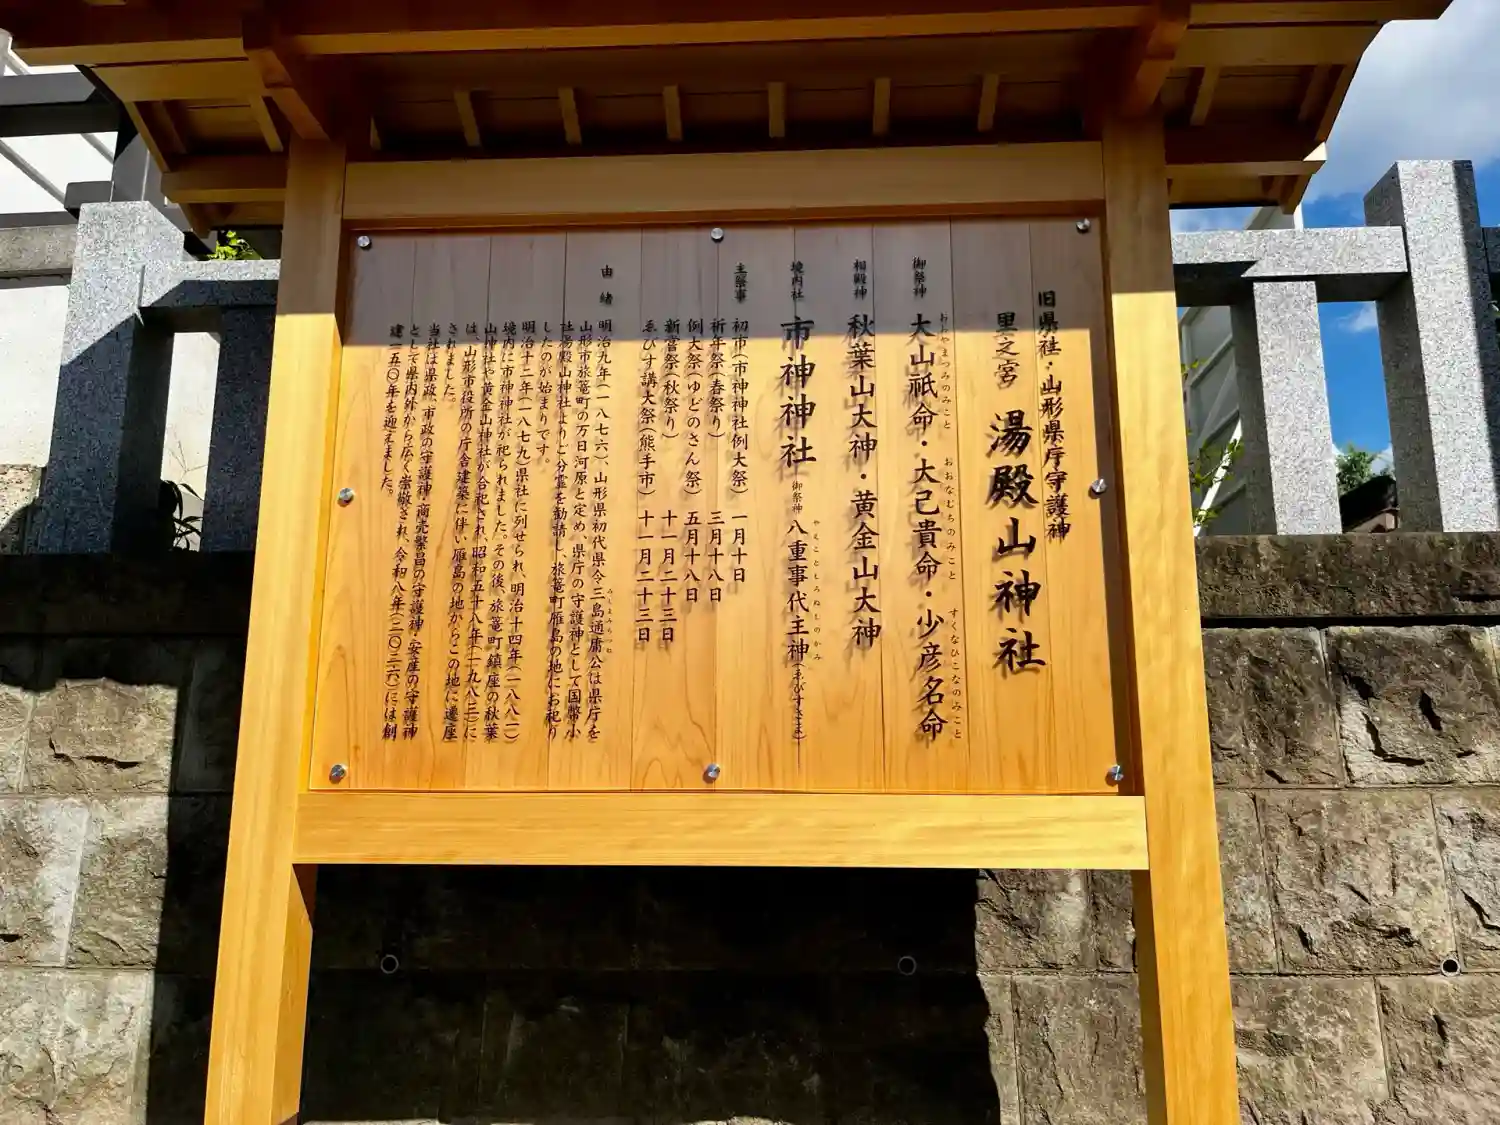 旧県社・山形県庁守護神
里之宮 湯殿山神社
御祭神 大山祇命・大己貴命・少彦名命
おおやまつみのみこと おおなむちのみこと すくなひこなのみこと
相殿神 秋葉山大神・黄金山大神
境内社 市神神社 御祭神 八重事代主神(ゑびすさま)
やえことしろぬしのかみ
主祭事 初市(市神神社例大祭) 一月十日
祈年祭(春祭り) 三月十八日
例大祭(ゆどのさん祭) 五月十八日
新嘗祭(秋祭り) 十一月二十三日
ゑびす講大祭(熊手市) 十一月二十三日
由緒 明治九年(一八七六)、山形県初代県令三島通庸公は県庁を
みしまみちつね
山形市旅篭町の万日河原と定め、県庁の守護神として国幣小
社湯殿山神社よりご分霊を勧請し、旅篭町雁島の地にお祀り
したのが始まりです。
明治十二年(一八七九)県社に列せられ、明治十四年(一八八一)
境内に市神神社が祀られました。その後、旅篭町鎮座の秋葉
山神社や黄金山神社が合祀され、昭和五十八年(一九八三)に
は、山形市役所の庁舎建築に伴い雁島の地からこの地に遷座
されました。
当社は県政、市政の守護神・商売繁昌の守護神・安産の守護神
として県内外から広く崇敬され、令和八年(二〇二六)には創
建一五〇年を迎えました。